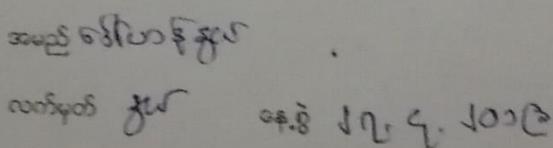 အမည် ဒေါ်ဟန်နွယ်
လက်မှတ် နွယ် နေ့စွဲ ၂၇. ၄. ၂၀၁၉